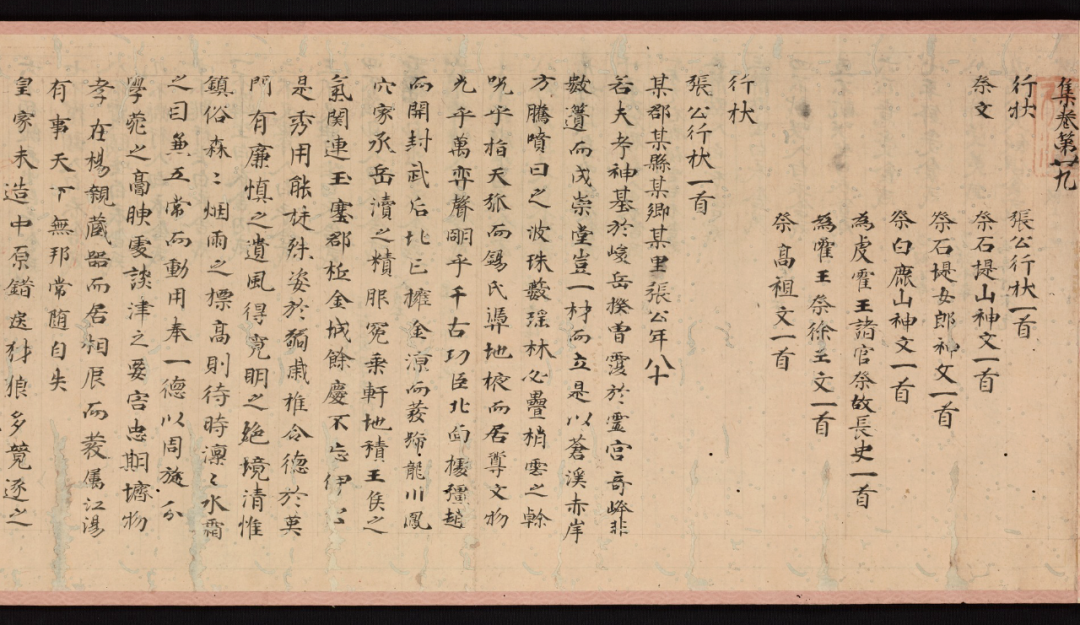 集卷第廿九
行狀 張公行狀一首
祭文 祭石堤山神文一首
祭石堤女郎神文一首
祭白鹿山神文一首
為虔霍王諸官祭故長史一首
為霍王祭徐王文一首
祭高祖文一首
行狀
張公行狀一首
某郡某縣某鄉某里張公年八十
若夫考神基於峻岳揆曾靈於靈宮奇峰非
數簣而成崇堂豈一材而立是以蒼溪赤岸
方騰噴日之波珠藪瑶林必疊梢雲之幹
况乎指天弧而錫氏躔地掖而居尊文物
光乎萬弈聲明乎千古功臣北面擾疆趙
而開封武后北已擁金涼而蕟號龍川鳳
穴家承岳瀆之精服冕乘軒地積王侯之
氣関連玉塞郡柢金城餘慶不忘伊公
是秀用能挺殊姿於弱歲推令德於莫
門有廉慎之遺風得寬明之絕境清惟
鎮俗森〻烟雨之標高則待時凜〻水霜
之日兼五常而動用奉一德以周旋分
學苑之膏腴處談津之要害忠期壙物
孝在楊親藏器而居相辰而蕟屬江湯
有事天下無邦常随自失
皇家未造中原錯逆豺狼多竟逐之